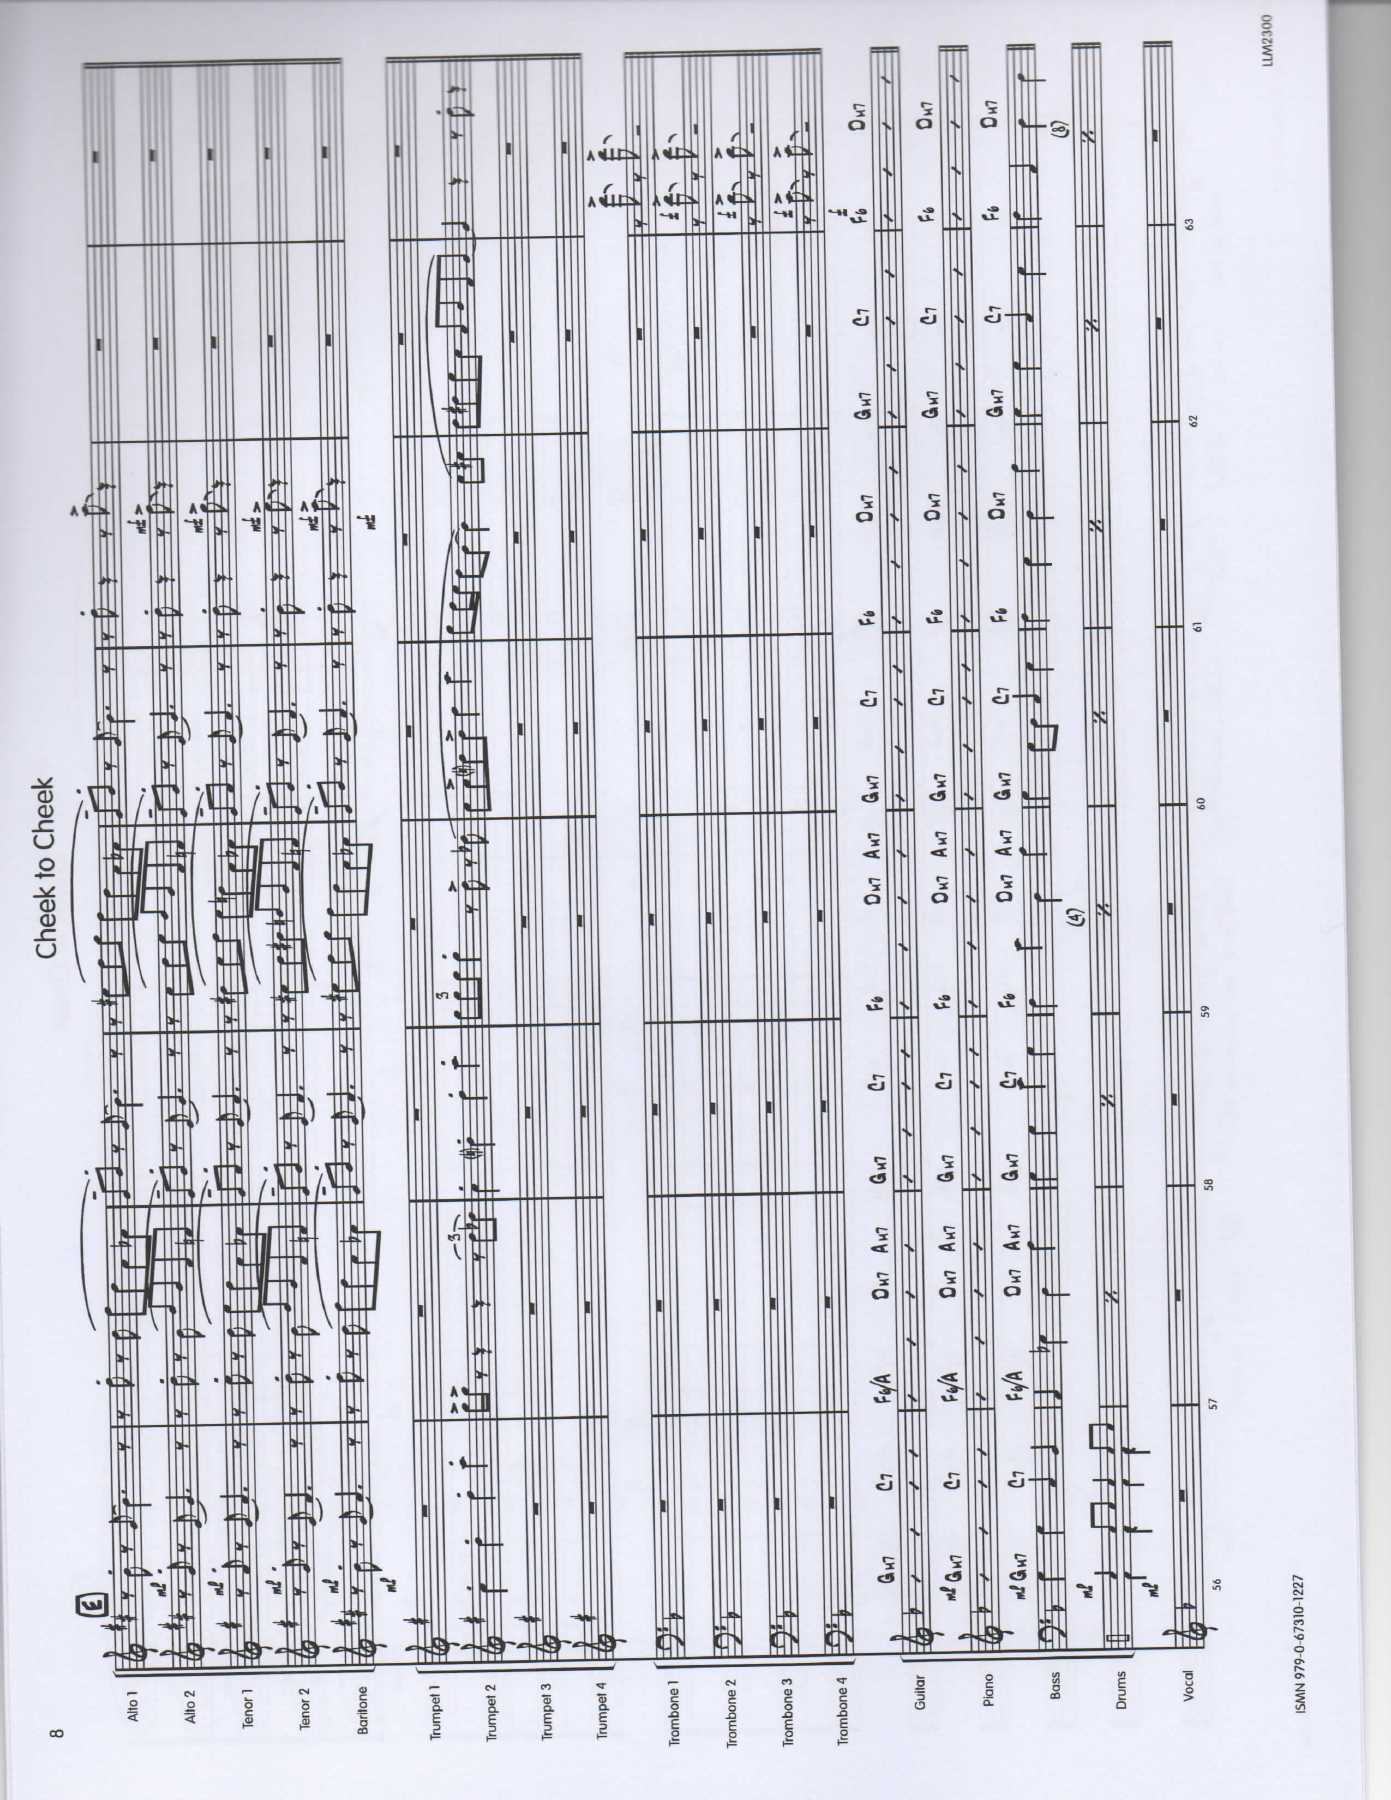 8
Cheek to Cheek
E
Alto 1
mf
Alto 2
mf
Tenor 1
mf
Tenor 2
mf
Baritone
mf
Trumpet 1
3 3
Trumpet 2
Trumpet 3
Trumpet 4
Trombone 1
Trombone 2
Trombone 3
Trombone 4
GM7 C7 F6/A DM7 AM7 GM7 C7 F6 DM7 AM7 GM7 C7 F6 DM7 GM7 C7 F6 DM7
Guitar
mf GM7 C7 F6/A DM7 AM7 GM7 C7 F6 DM7 AM7 GM7 C7 F6 DM7 GM7 C7 F6 DM7
Piano
mf GM7 C7 F6/A DM7 AM7 GM7 C7 F6 DM7 AM7 GM7 C7 F6 DM7 GM7 C7 F6 DM7
Bass
mf (4) (8)
Drums
mf
Vocal
56 57 58 59 60 61 62 63
ISMN 979-0-67310-1227
LLM2300